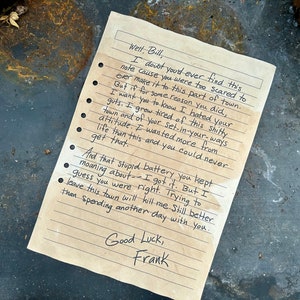 Well, Bill,
I doubt you'd ever find this
note cause you were too scared to
ever make it to this part of town.
But if for some reason you did,
I want you to know I hated your
guts. I grew tired of this shitty
town and of your set-in-your ways
attitude. I wanted more from
life than this and you could never
get that.
And that stupid battery you kept
moaning about - I got it. But I
guess you were right. Trying to
leave this town will kill me. Still better
than spending another day with you.
Good Luck,
Frank